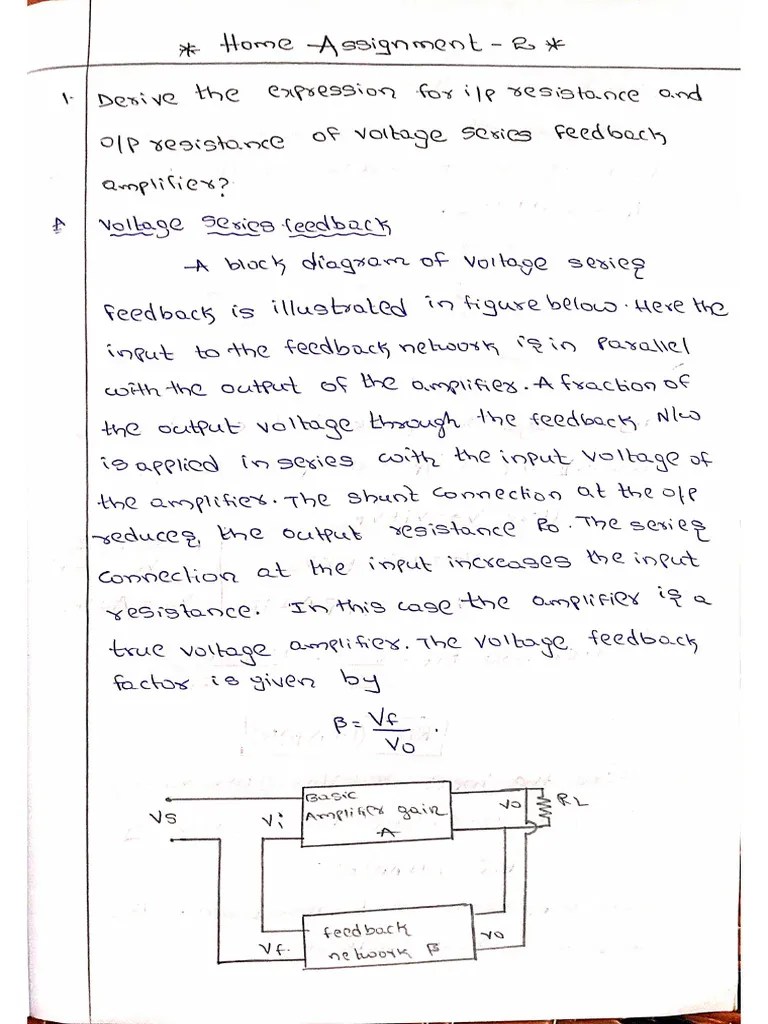 * Home Assignment - 2 *
1. Derive the expression for i/p resistance and
o/p resistance of voltage series feedback
amplifier?
A Voltage series feedback
A block diagram of voltage series
feedback is illustrated in figure below. Here the
input to the feedback network is in parallel
with the output of the amplifier. A fraction of
the output voltage through the feedback N/w
is applied in series with the input voltage of
the amplifier. The shunt connection at the o/p
reduces, the output resistance Ro. The series
connection at the input increases the input
resistance. In this case the amplifier is a
true voltage amplifier. The voltage feedback
factor is given by
β = Vf
Vo .
Basic
Vs Vi Amplifier gain Vo RL
A
feedback
Vf. network β Vo